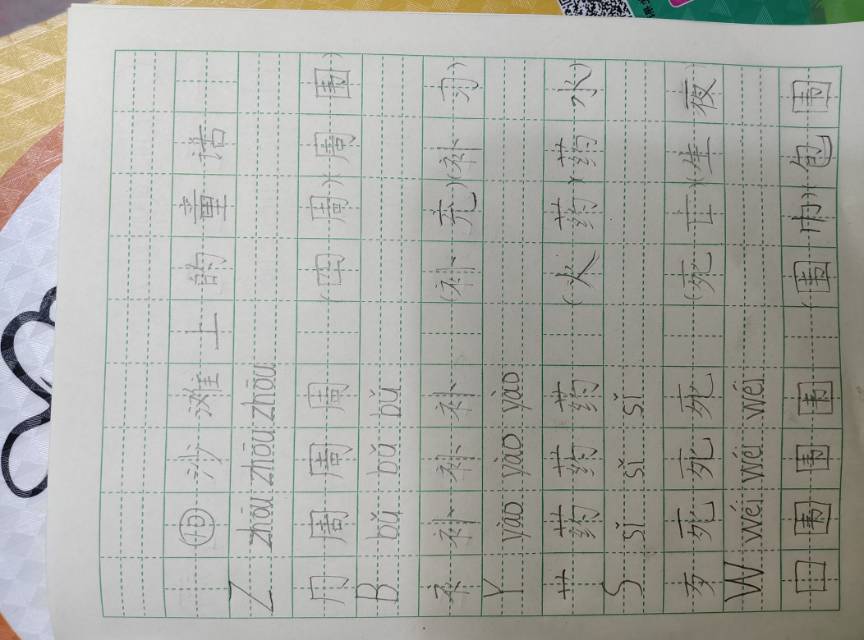 ⑩ 沙滩上的童话
Z zhōu zhōu zhōu
冂 周 周 周 (四周)(周围)
B bǔ bǔ bǔ
衤 补 补 补 (补充)(补习)
Y yào yào yào
艹 药 药 药 (火药)(药水)
S sǐ sǐ sǐ
歹 死 死 死 (死亡)(生夜)
W wéi wéi wéi
囗 围 围 围 (围巾)(包围